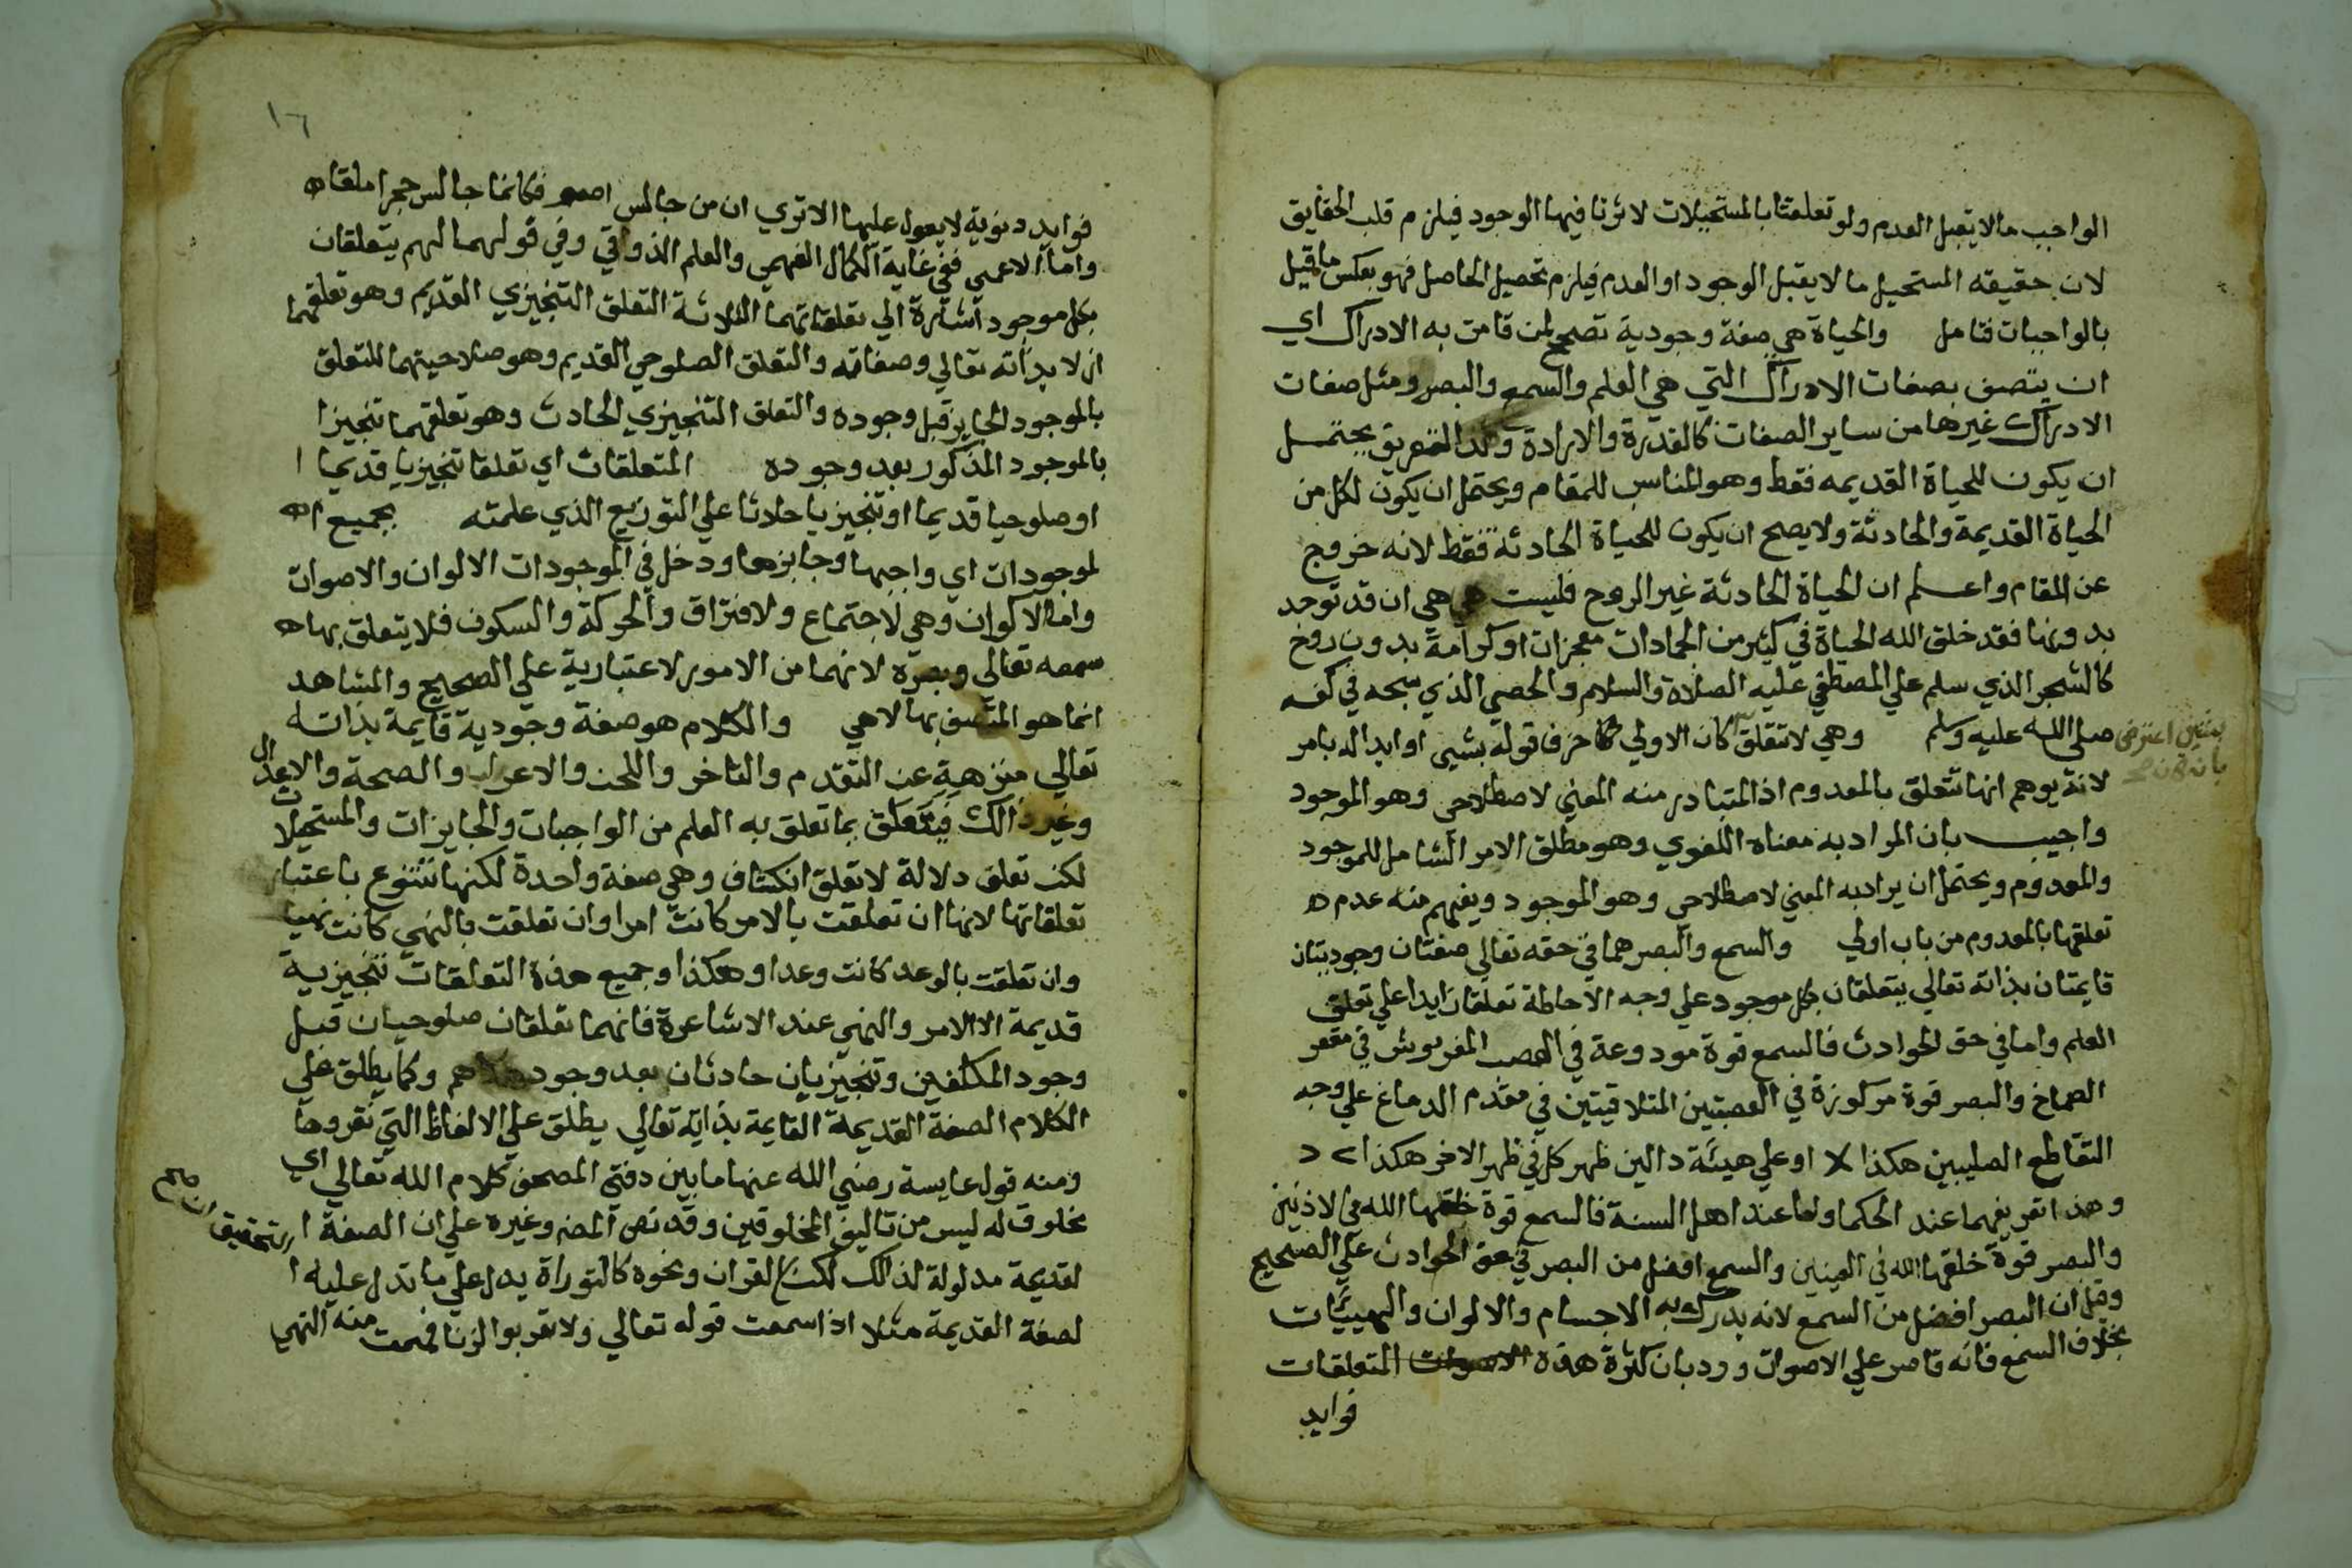 الواجب ما لا يقبل العدم ولو تعلقتا بالمستحيلات لاثرتا فيها الوجود فيلزم قلب الحقايق
لان حقيقه المستحيل ما لا يقبل الوجود او العدم فيلزم تحصيل الحاصل فهو بعكس ما قيل
بالواجبات فتامل والحياة هي صفة وجودية تصحح لمن قامت به الادراك اي
ان يتصف بصفات الادراك التي هي العلم والسمع والبصر ومثل صفات
الادراك غيرها من ساير الصفات كالقدرة والارادة وهذا التعريف يحتمل
ان يكون للحياة القديمه فقط وهو المناسب للمقام ويحتمل ان يكون لكل من
الحياة القديمة والحادثة ولا يصح ان يكون للحياة الحادثة فقط لانه خروج
عن المقام واعلم ان الحياة الحادثة غير الروح فليست هي هي ان قد توجد
بدونها فقد خلق الله الحياة في كثير من الجمادات معجزات او كرامة بدون روح
كالشجر الذي سلم علي المصطفي عليه الصلاة والسلام والحصي الذي سبحه في كفه
صلي الله عليه وسلم وهي لا تتعلق كان الاولي حذف قوله بشيي او ابداله بامر
لانه يوهم انها تتعلق بالمعدوم اذ المتبادر منه المعني لاصطلاحي وهو الموجود
واجيب بان المراد به معناه اللغوي وهو مطلق الامر الشامل للموجود
والمعدوم ويحتمل ان يراد به المعني لاصطلاحي وهو الموجود ويفهم منه عدم ه
تعلقها بالمعدوم من باب اولي والسمع والبصر هما في حقه تعالي صفتان وجوديتان
قايمتان بذاته تعالي يتعلقان بكل موجود علي وجه الاحاطة تعلقا زايدا علي تعلق
العلم واما في حق الحوادث فالسمع قوة مودوعة في العصب المفروش في مقعر
الصماخ والبصر قوة مركوزة في العصبتين المتلاقيتين في مقدم الدماغ علي وجه
التقاطع الصليبين هكذا او علي هيئة دالين ظهر كل في ظهر الاخر هكذا > د
وهذا تعريفهما عند الحكما واما عند اهل السنة فالسمع قوة خلقها الله في الاذنين
والبصر قوة خلقها الله في العينين والسمع افضل من البصر في حق الحوادث علي الصحيح
وقيل ان البصر افضل من السمع لانه يدرك به الاجسام والالوان والهييات
بخلاف السمع فانه قاصر علي الاصوات ورد بان كثرة هذه المتعلقات
فوايد
١٦
فوايد دنوية لا يعول عليها الا تري ان من جالس اصم فكانما جالس حجرا ملقا ه
واما الاعمي ففي غاية الكمال الفهمي والعلم الذوقي وفي قولهما لهم يتعلقان
بكل موجود اشارة الي تعلقاتهما الثلاثة التعلق التنجيزي القديم وهو تعلقهما
ازلا بذاته تعالي وصفاته والتعلق الصلوحي القديم وهو صلاحيتهما للتعلق
بالموجود الجايز قبل وجوده والتعلق التنجيزي الحادث وهو تعلقهما تنجيزا
بالموجود المذكور بعد وجوده المتعلقات اي تعلقا تنجيزيا قديما ا
او صلوحيا قديما او تنجيزيا حادثا علي التوزيع الذي علمته بجميع ا ه
لموجودات اي واجبها وجايزها ودخل في الموجودات الالوان والاصوات
واما الاكوان وهي لاجتماع ولافتراق والحركة والسكون فلا يتعلق بها ه
سمعه تعالي وبصره لانهما من الامور لاعتبارية علي الصحيح والمشاهد
انما هو المتصف بها لا هي والكلام هو صفة وجودية قايمة بذاته
تعالي منزهة عن التقدم والتاخر واللحن والاعراب والصحة والاعلال
وغير ذالك فيتعلق بما تعلق به العلم من الواجبات والجايزات والمستحيلات
لكن تعلق دلالة لا تعلق انكشاف وهي صفة واحدة لكنها تتنوع باعتبار
تعلقاتها لانها ان تعلقت بالامر كانت امرا وان تعلقت بالنهي كانت نهيا
وان تعلقت بالوعد كانت وعدا وهكذا وجميع هذه التعلقات تنجيزية
قديمة الا الامر والنهي عند الاشاعرة فانهما تعلقان صلوحيان قبل
وجود المكلفين وتنجيزيان حادثان بعد وجودهم وكما يطلق علي
الكلام الصفة القديمة القايمة بذاته تعالي يطلق علي الالفاظ التي نقروها
ومنه قول عايسة رضي الله عنها ما بين دفتي المصحف كلام الله تعالي اي
مخلوق له ليس من تاليف المخلوقين وقد نص المصنف وغيره علي ان الصفة ا
لقديمة مدلولة لذالك لكن القران ونحوه كالتوراة يدل علي ما تدل عليه ا
لصفة القديمة مثلا اذا سمعت قوله تعالي ولا تقربوا الزنا فهمت منه النهي